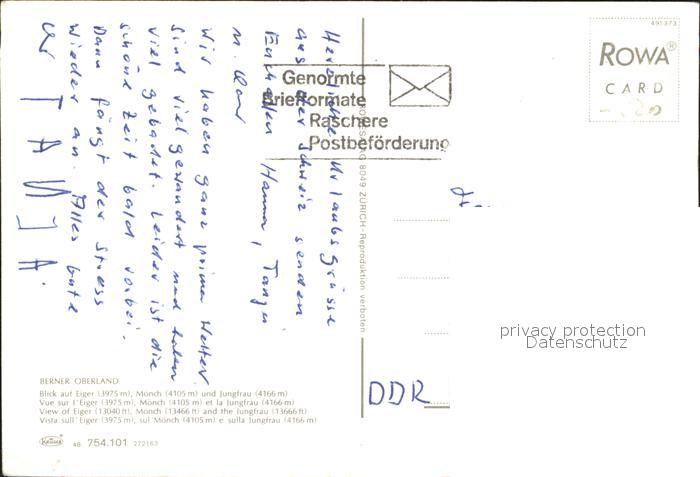 Herzliche Urlaubsgrüsse
aus der Schweiz senden
Euch allen Hanna, Tanja
u.
Wir haben ganz prima Wetter
sind viel gewandert und haben
viel gebadet. Leider ist die
schöne Zeit bald vorbei.
Dann fängt der Stress
wieder an. Alles Gute
TANJA.
Genormte
Briefformate
Raschere
Postbeförderung
491373
ROWA®
CARD
8049 ZÜRICH · Reproduktion verboten
DDR
privacy protection
Datenschutz
BERNER OBERLAND
Blick auf Eiger (3975 m), Mönch (4105 m) und Jungfrau (4166 m)
Vue sur l'Eiger (3975 m), Mönch (4105 m) et la Jungfrau (4166 m)
View of Eiger (13040 ft), Mönch (13466 ft) and the Jungfrau (13666 ft)
Vista sull'Eiger (3975 m), sul Mönch (4105 m) e sulla Jungfrau (4166 m)
Krüger 48 754.101 272163